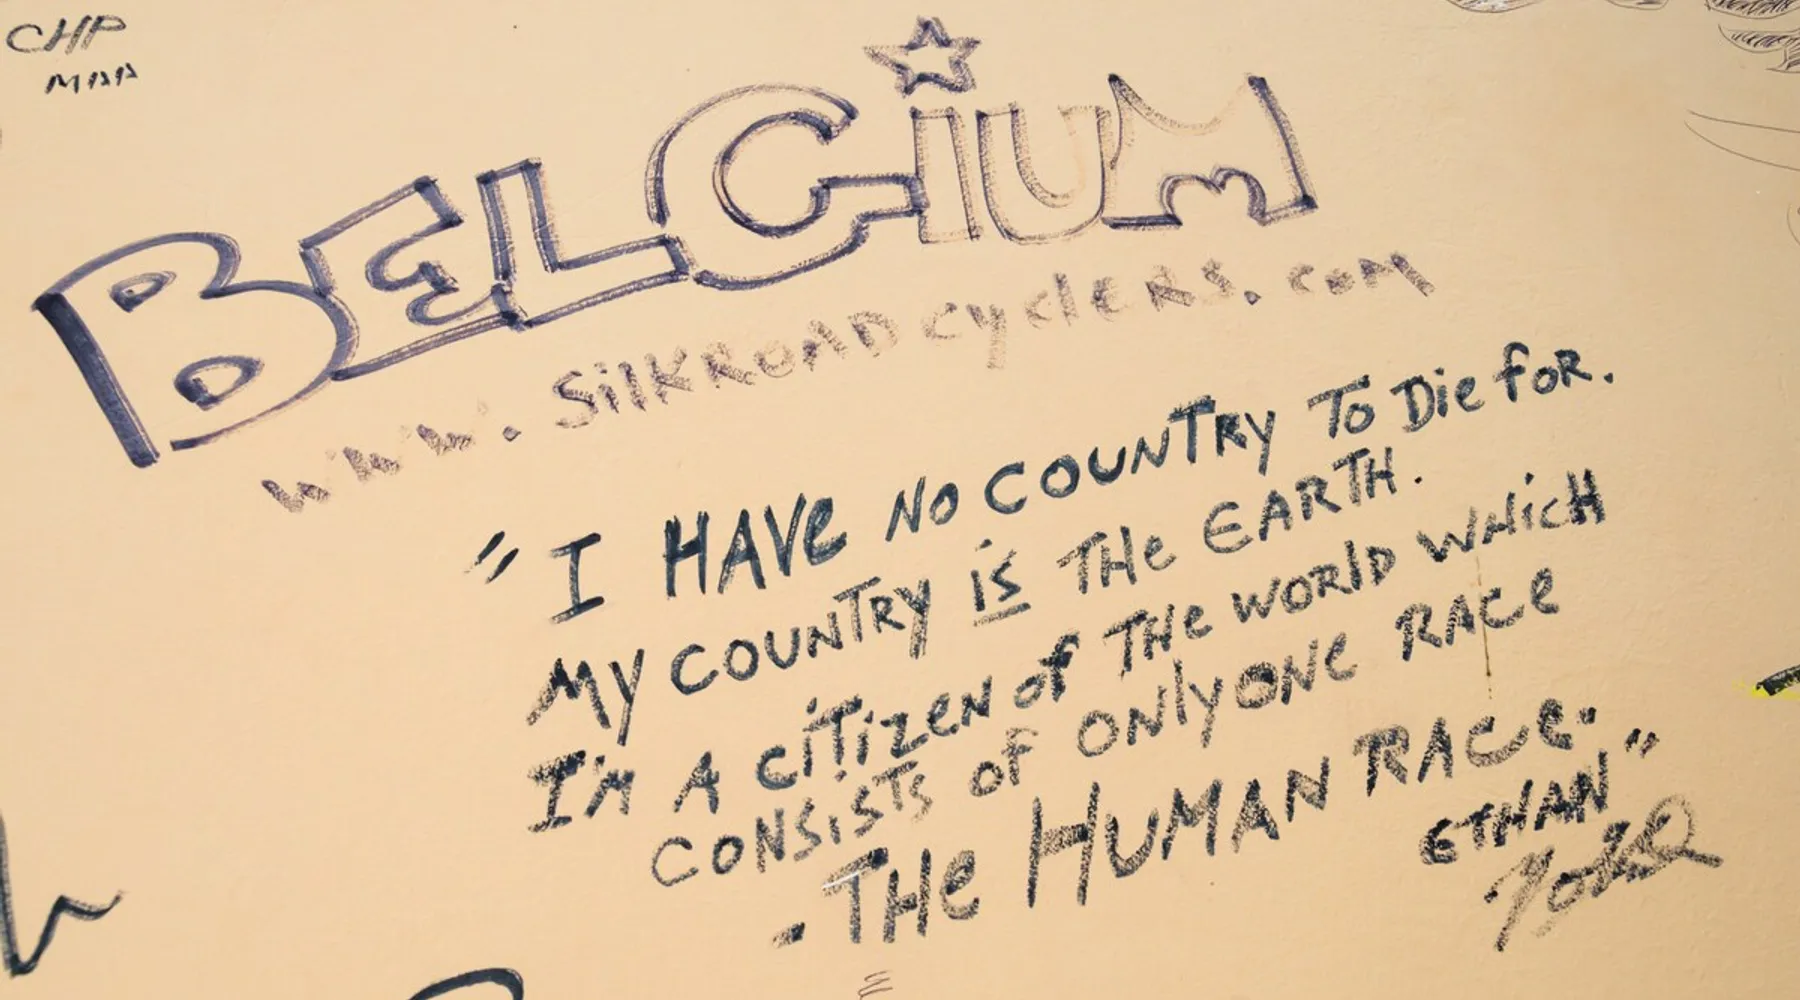 CHP
MAA
BELGiUM
www.SilkROADcyclERS.com
"I HAVe NO COUNTRY To Die foR.
My COUNTRy is THe EARTH.
I'm A ciTizen of THe WORlD WHicH
CONSiSTS of ONly ONe RACe
- THe HUMAN RACe.
ETHAN"